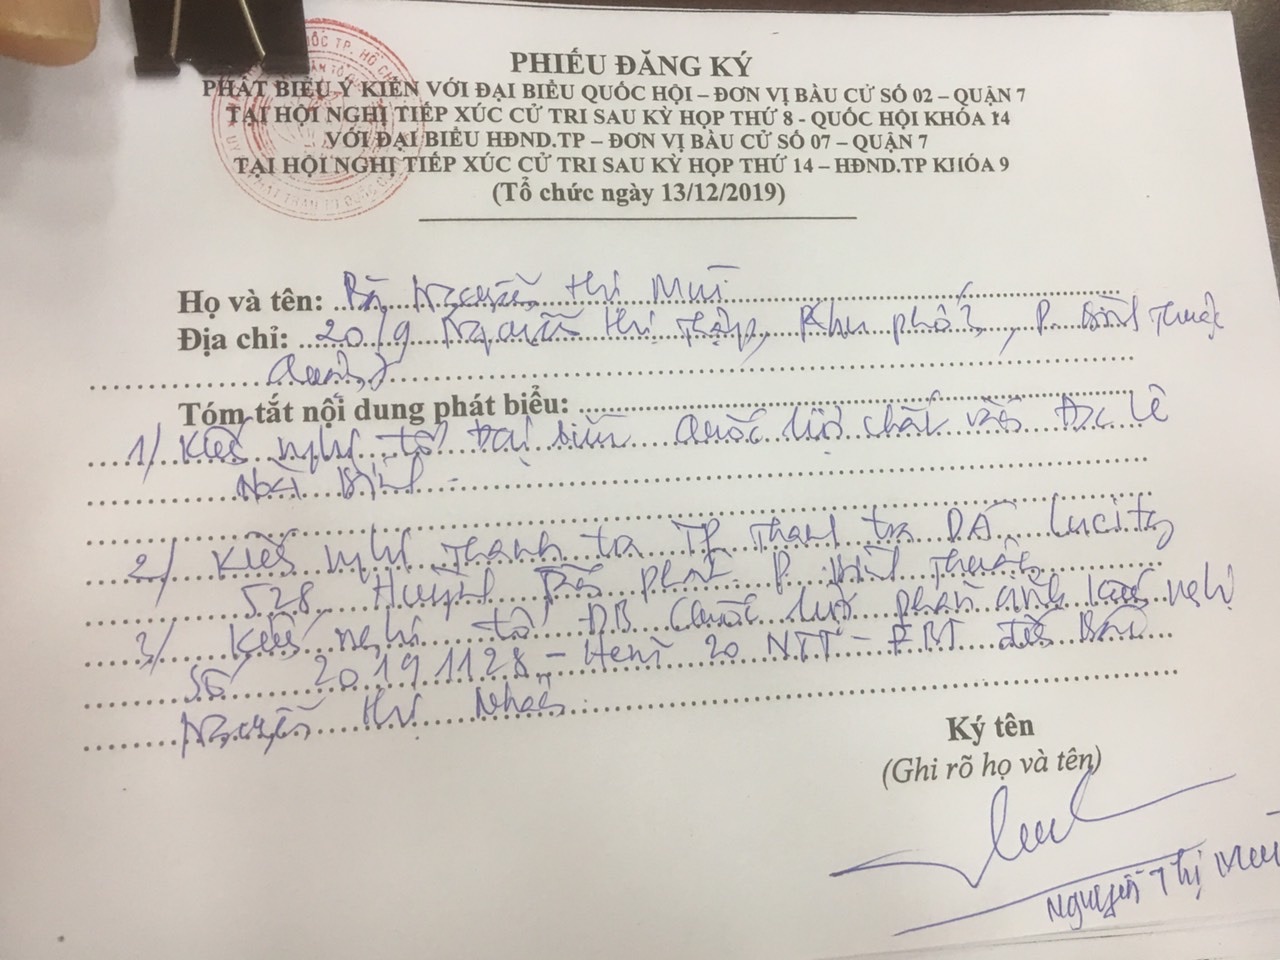 PHIẾU ĐĂNG KÝ
PHÁT BIỂU Ý KIẾN VỚI ĐẠI BIỂU QUỐC HỘI – ĐƠN VỊ BẦU CỬ SỐ 02 – QUẬN 7
TẠI HỘI NGHỊ TIẾP XÚC CỬ TRI SAU KỲ HỌP THỨ 8 - QUỐC HỘI KHÓA 14
VỚI ĐẠI BIỂU HĐND.TP – ĐƠN VỊ BẦU CỬ SỐ 07 – QUẬN 7
TẠI HỘI NGHỊ TIẾP XÚC CỬ TRI SAU KỲ HỌP THỨ 14 – HĐND.TP KHÓA 9
(Tổ chức ngày 13/12/2019)
Họ và tên: Bà Nguyễn Thị Mùi
Địa chỉ: 20/9 Nguyễn Thị Thập, Khu phố, P. Bình Thuận
Quận 7
Tóm tắt nội dung phát biểu:
1/ Kiến nghị tổ Đại biểu Quốc hội chất vấn lê
Hòa Bình
2/ Kiến nghị Thanh tra TP Thanh tra DA Lucity
528 Huỳnh Tấn phát P. Bình Thuận
3/ Kiến nghị tổ ĐB Quốc hội phản ánh kiến nghị
Số 20191128 - Hẻm 20 NTT - đến Bà
Nguyễn Thị
Ký tên
(Ghi rõ họ và tên)
Nguyễn Thị Mùi